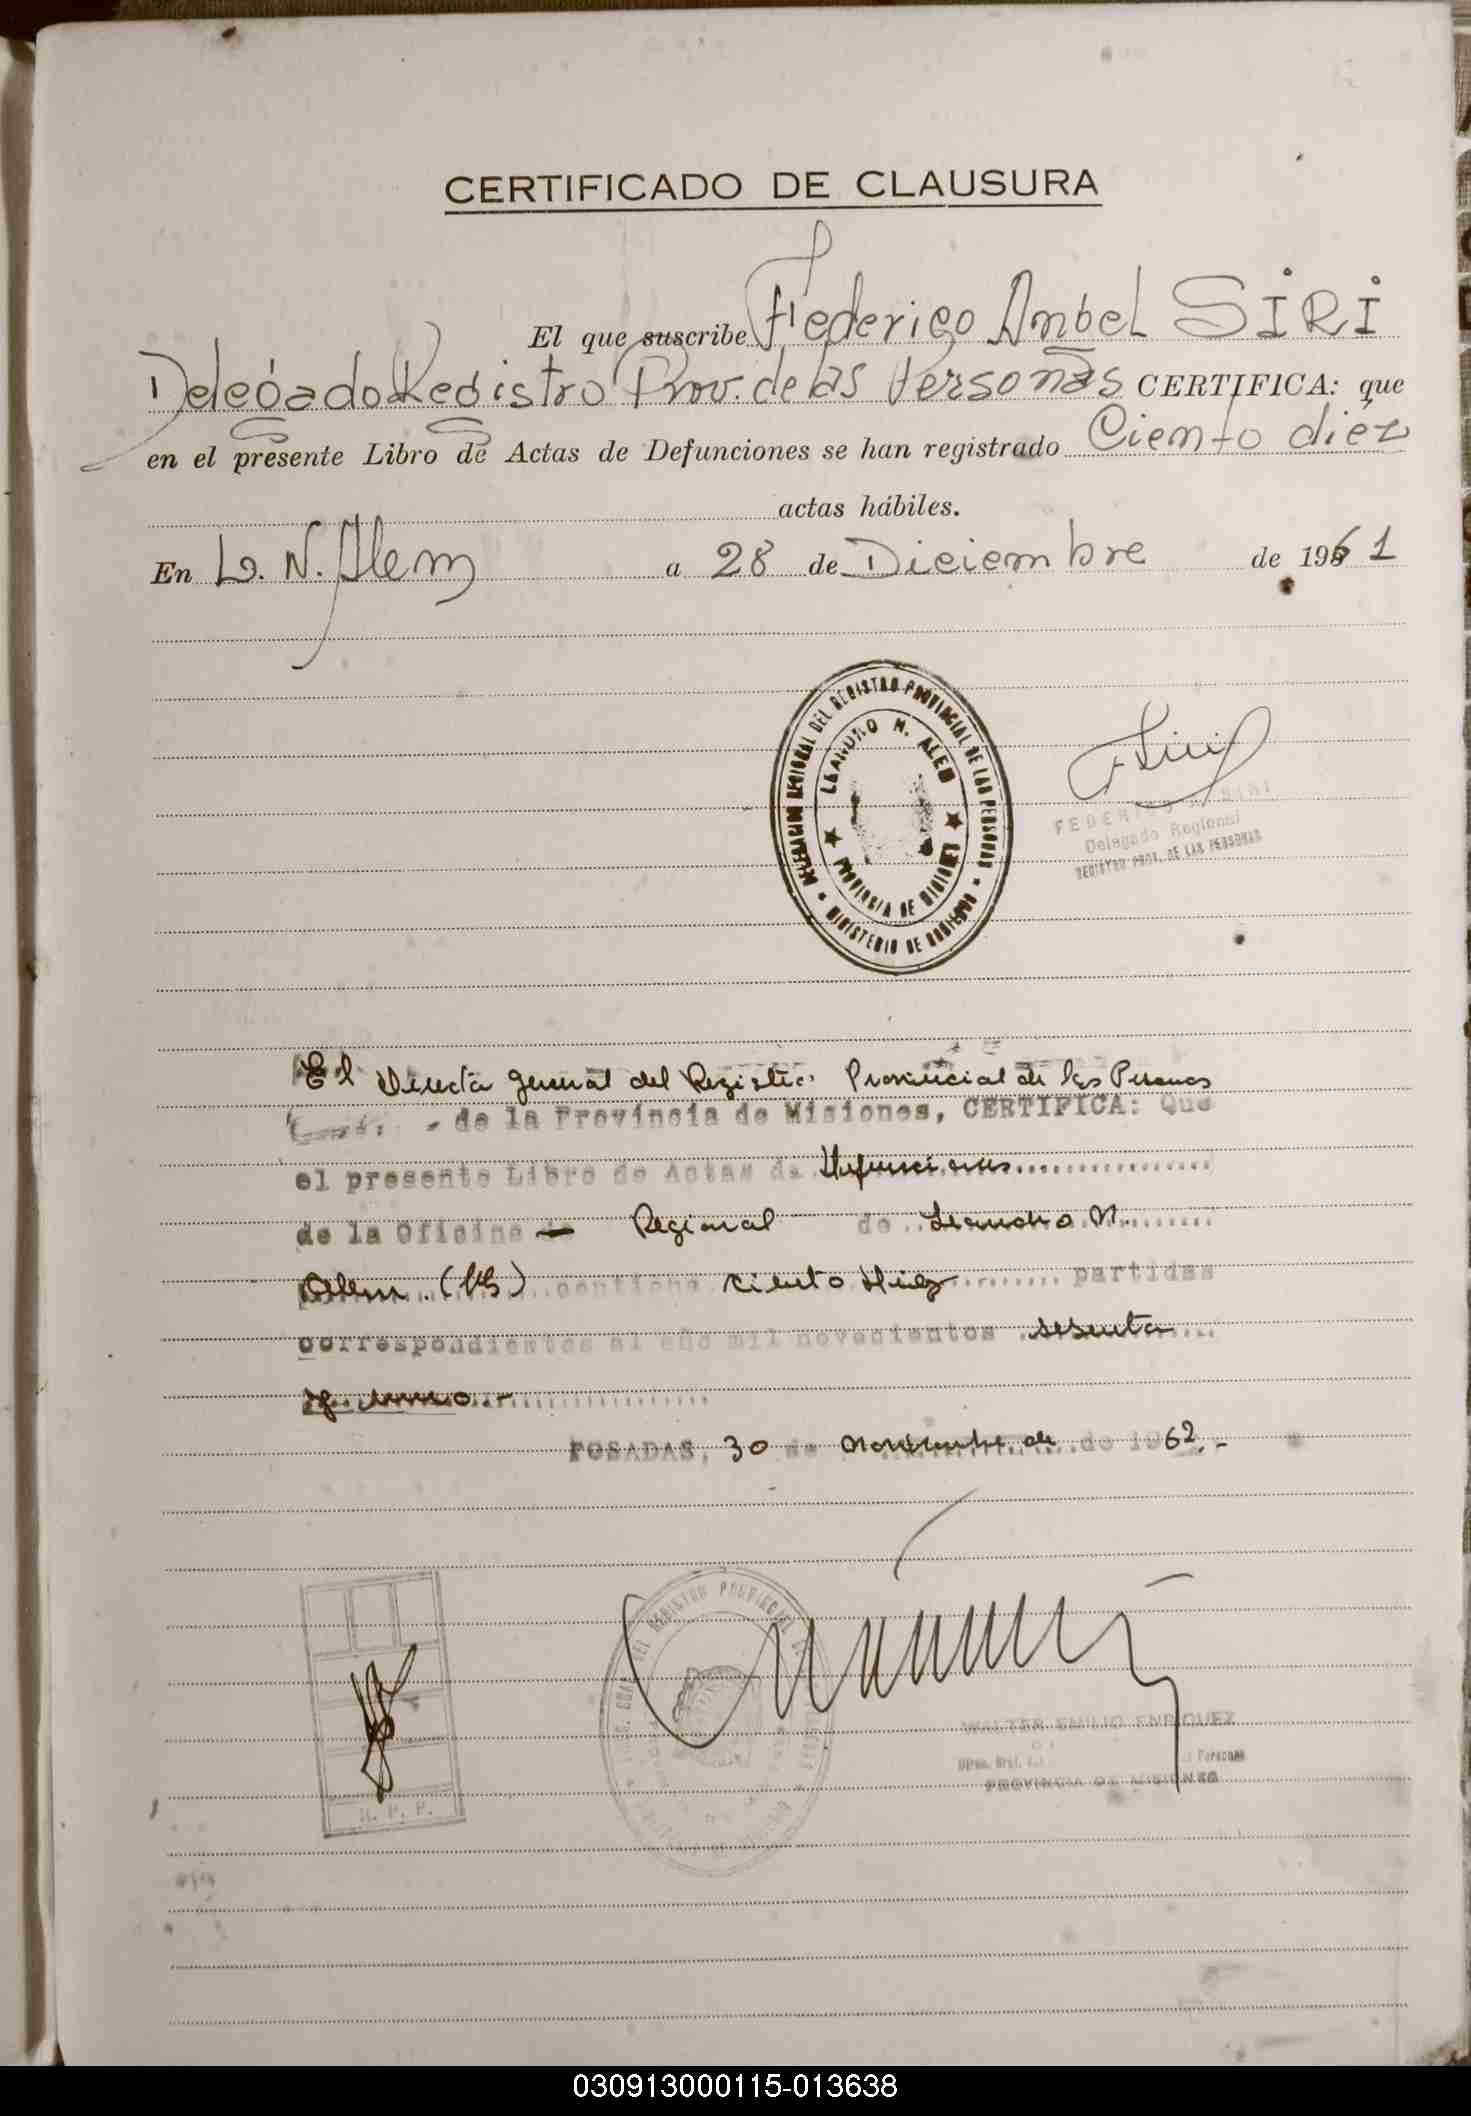 CERTIFICADO DE CLAUSURA
El que suscribe Federico Angel SiRi
Delegado Registro Prov. de las Personas CERTIFICA: que
en el presente Libro de Actas de Defunciones se han registrado Ciento diez
actas hábiles.
En L. N. Alem a 28 de Diciembre de 1961
DELEGACION REGIONAL DEL REGISTRO PROVINCIAL DE LAS PERSONAS
LEANDRO N. ALEM
PROVINCIA DE MISIONES
MINISTERIO DE GOBIERNO
F Siri
FEDERICO A. SIRI
Delegado Regional
REGISTRO PROV. DE LAS PERSONAS
El Director General del Registro Provincial de las Personas
de la Provincia de Misiones, CERTIFICA: Que
el presente Libro de Actas de Defunciones
de la Oficina Regional de Leandro N.
Alem. contiene ciento diez partidas
correspondientes al año mil novecientos sesenta
y uno.-
POSADAS, 30 de noviembre de de 1962.-
REGISTRO PROVINCIAL
R. P. P.
WALTER EMILIO ENRIQUEZ
PROVINCIA DE MISIONES
030913000115-013638